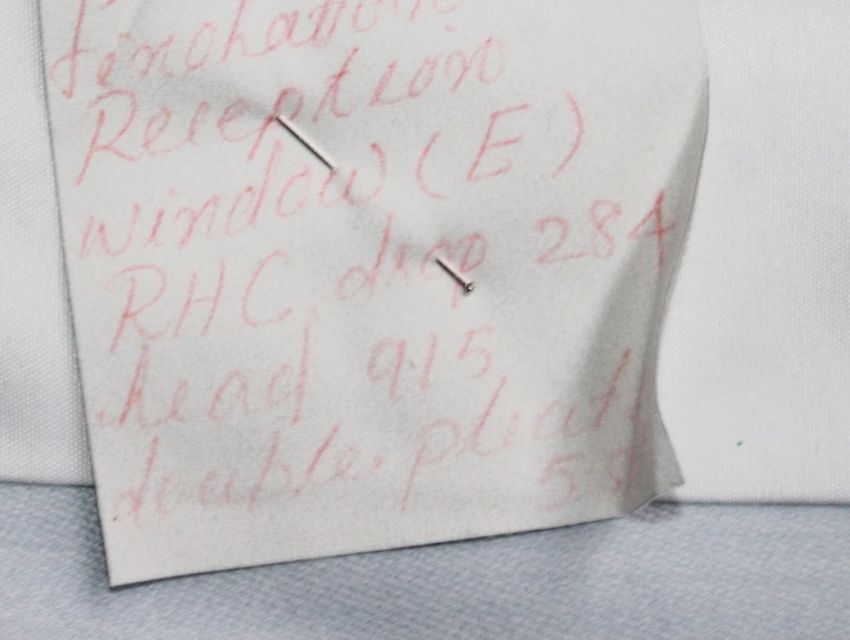 Reception
window (E)
RHC drop 284
head 915
double pleat